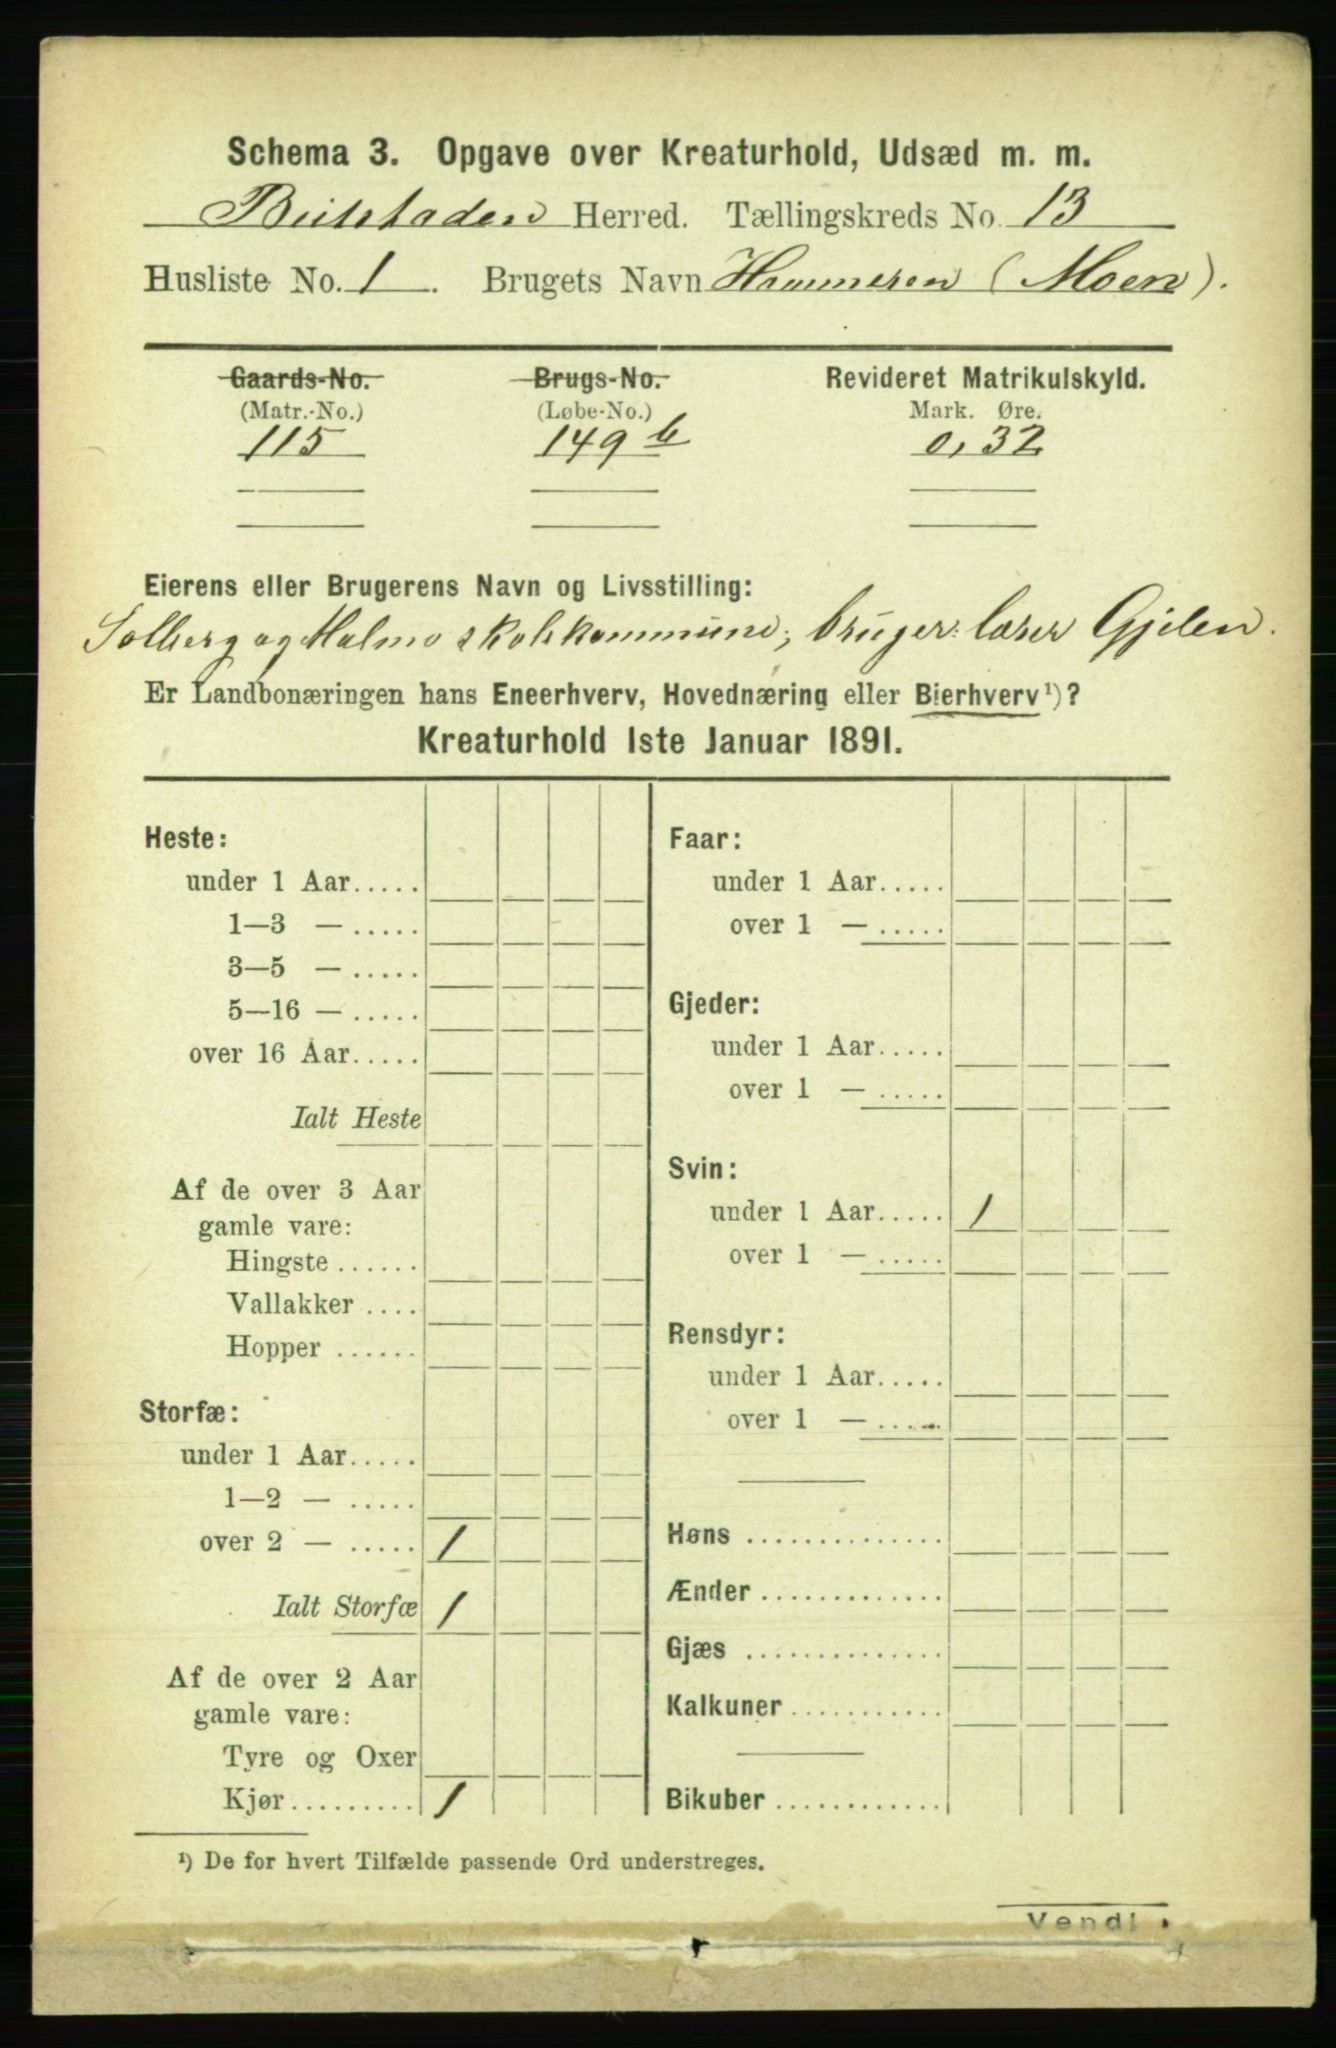 Schema 3. Opgave over Kreaturhold, Udsæd m. m.
Beitstaden Herred. Tællingskreds No. 13
Husliste No. 1. Brugets Navn Hammeren (Moen).
Gaards-No. Brugs-No. Revideret Matrikulskyld.
(Matr.-No.) (Løbe-No.) Mark. Øre.
115 149 b 0,32
Eierens eller Brugerens Navn og Livsstilling:
Solberg og Malmo skolekommune; bruger: lærer Gjelen.
Er Landbonæringen hans Eneerhverv, Hovednæring eller Bierhverv¹)?
Kreaturhold 1ste Januar 1891.
Heste:
under 1 Aar.....
1—3 — .....
3—5 — .....
5—16 — .....
over 16 Aar.....
Ialt Heste
Af de over 3 Aar
gamle vare:
Hingste ......
Vallakker ....
Hopper ......
Storfæ:
under 1 Aar.....
1—2 — .....
over 2 — ..... 1
Ialt Storfæ 1
Af de over 2 Aar
gamle vare:
Tyre og Oxer
Kjør.......... 1
Faar:
under 1 Aar.....
over 1 — .....
Gjeder:
under 1 Aar.....
over 1 — .....
Svin:
under 1 Aar..... 1
over 1 — .....
Rensdyr:
under 1 Aar.....
over 1 — .....
Høns ..............
Ænder .............
Gjæs ..............
Kalkuner ...........
Bikuber ............
¹) De for hvert Tilfælde passende Ord understreges.
Vend!